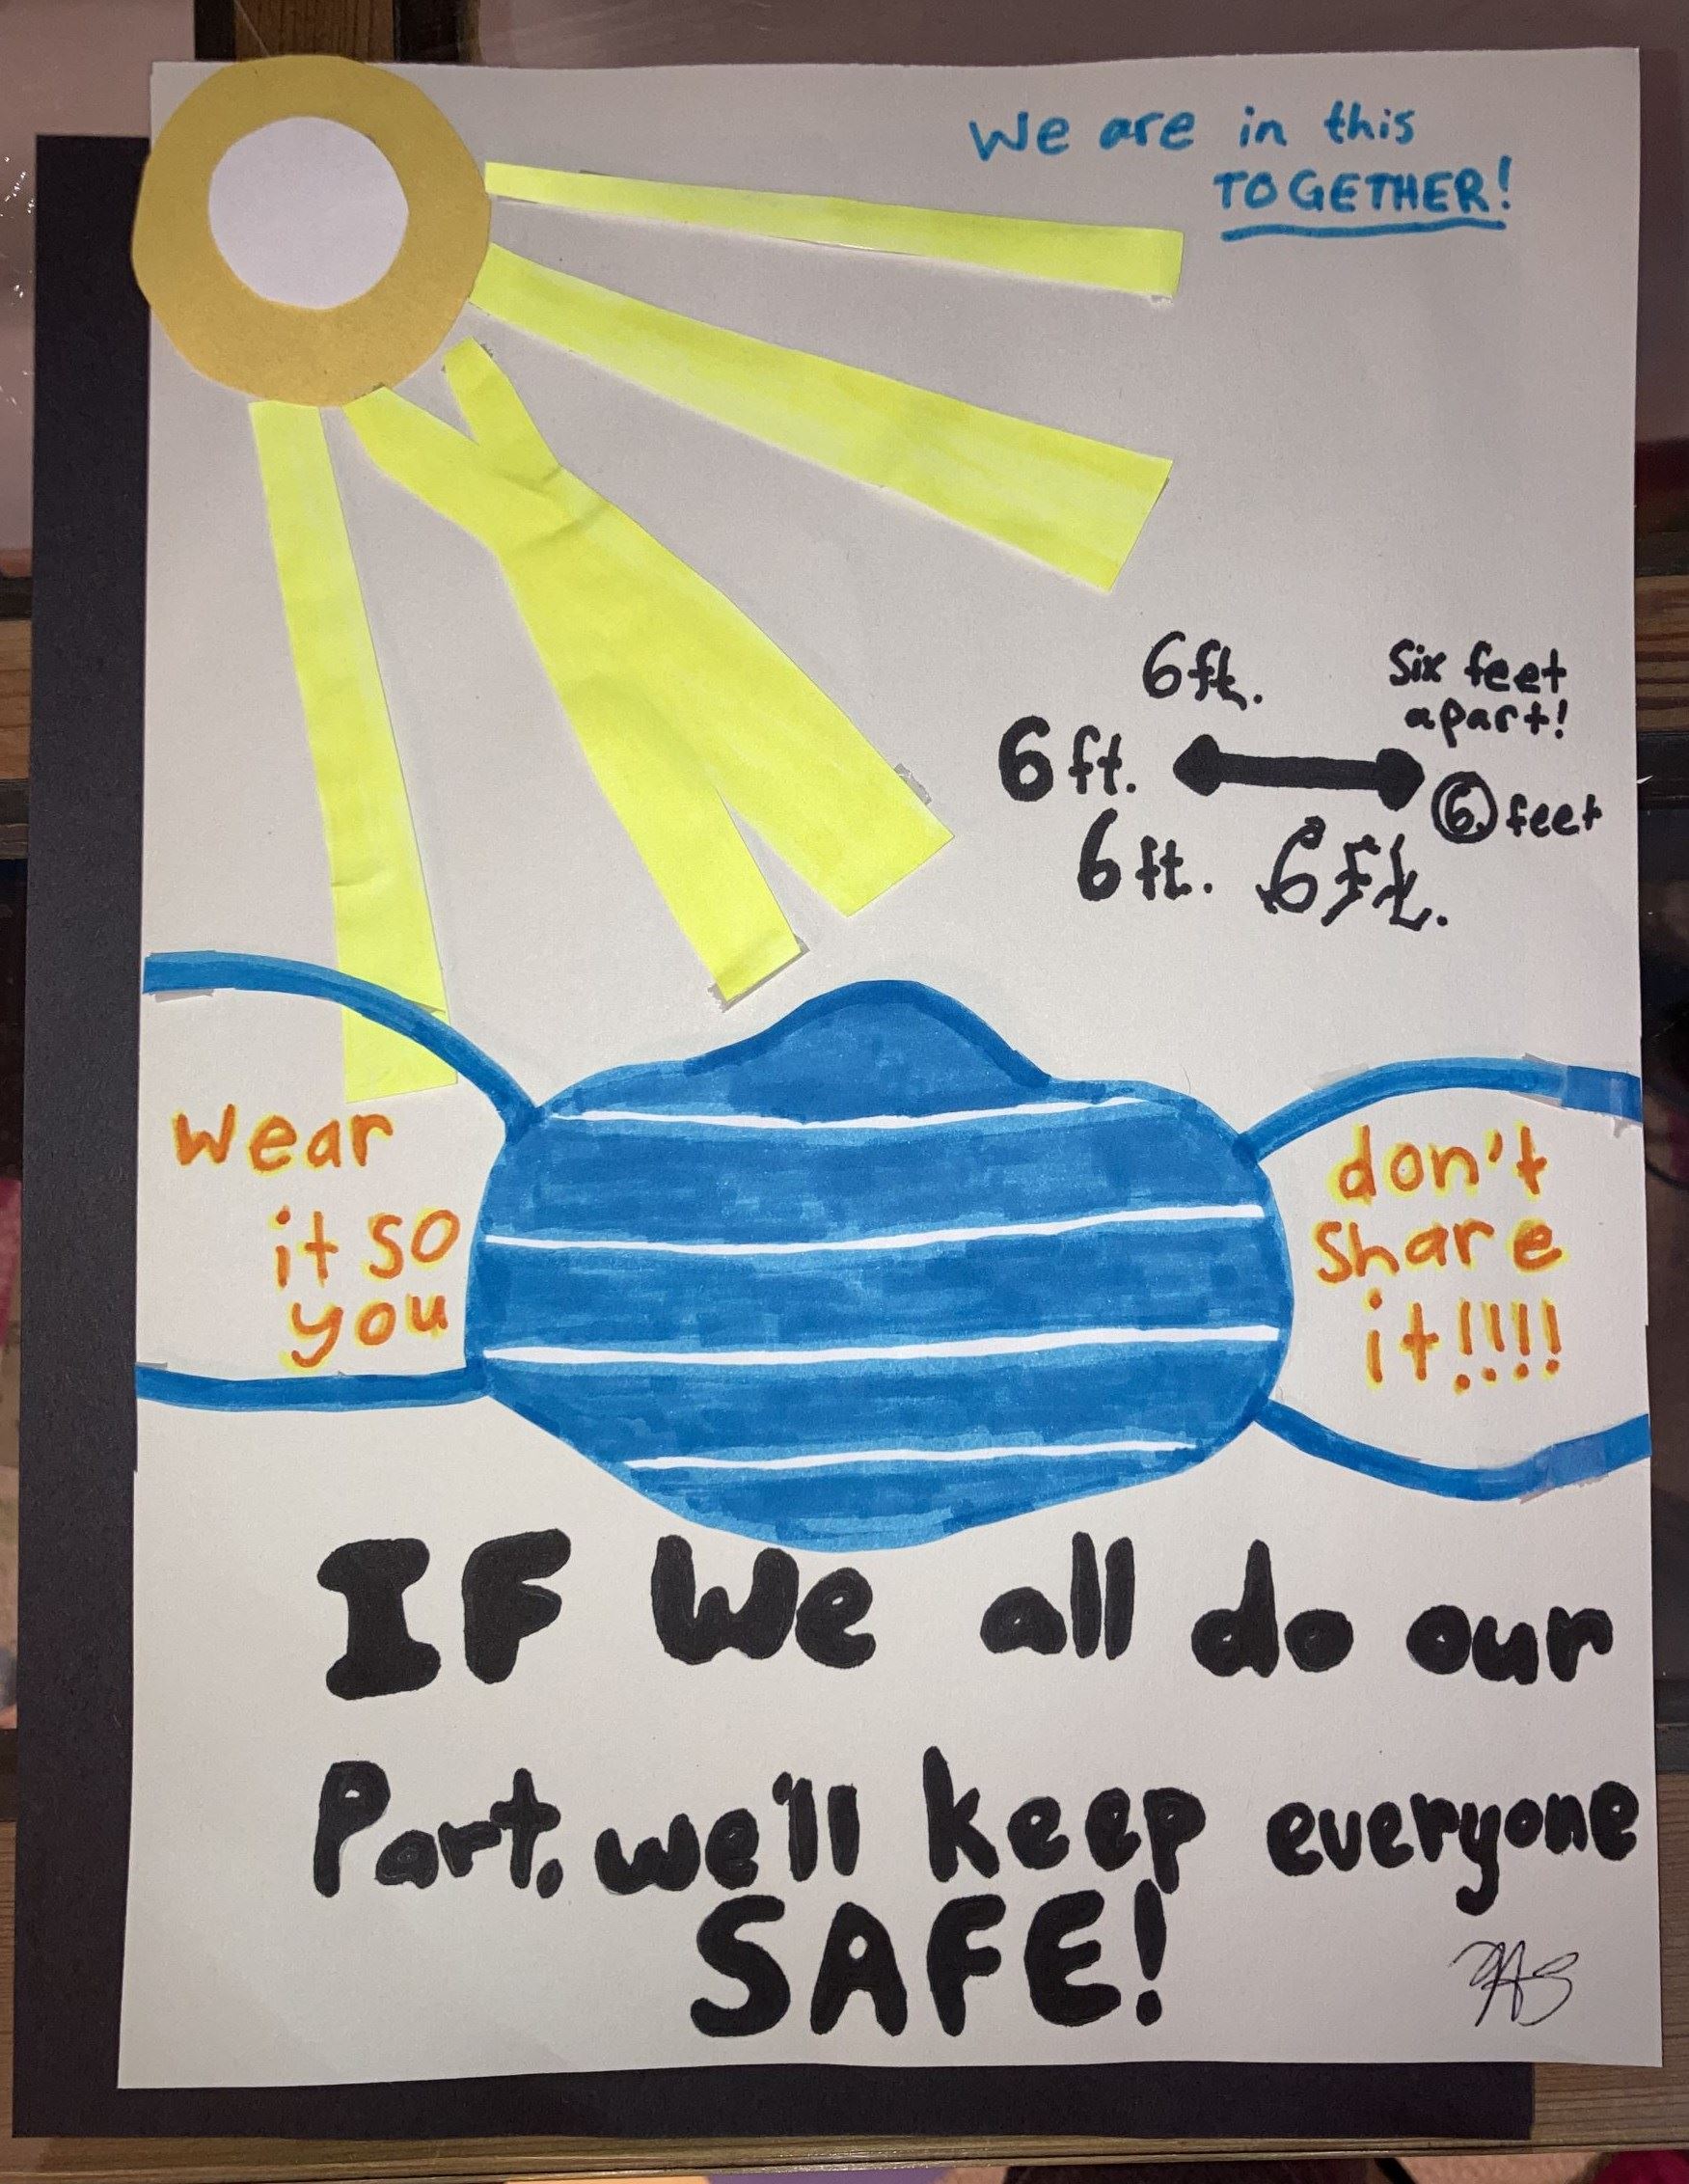 We are in this
TOGETHER!
6ft.
Six feet
apart!
6 ft.
6 feet
6 ft.
6ft.
Wear
it so
you
don't
share
it!!!!
IF We all do our
Part, we'll keep everyone
SAFE!